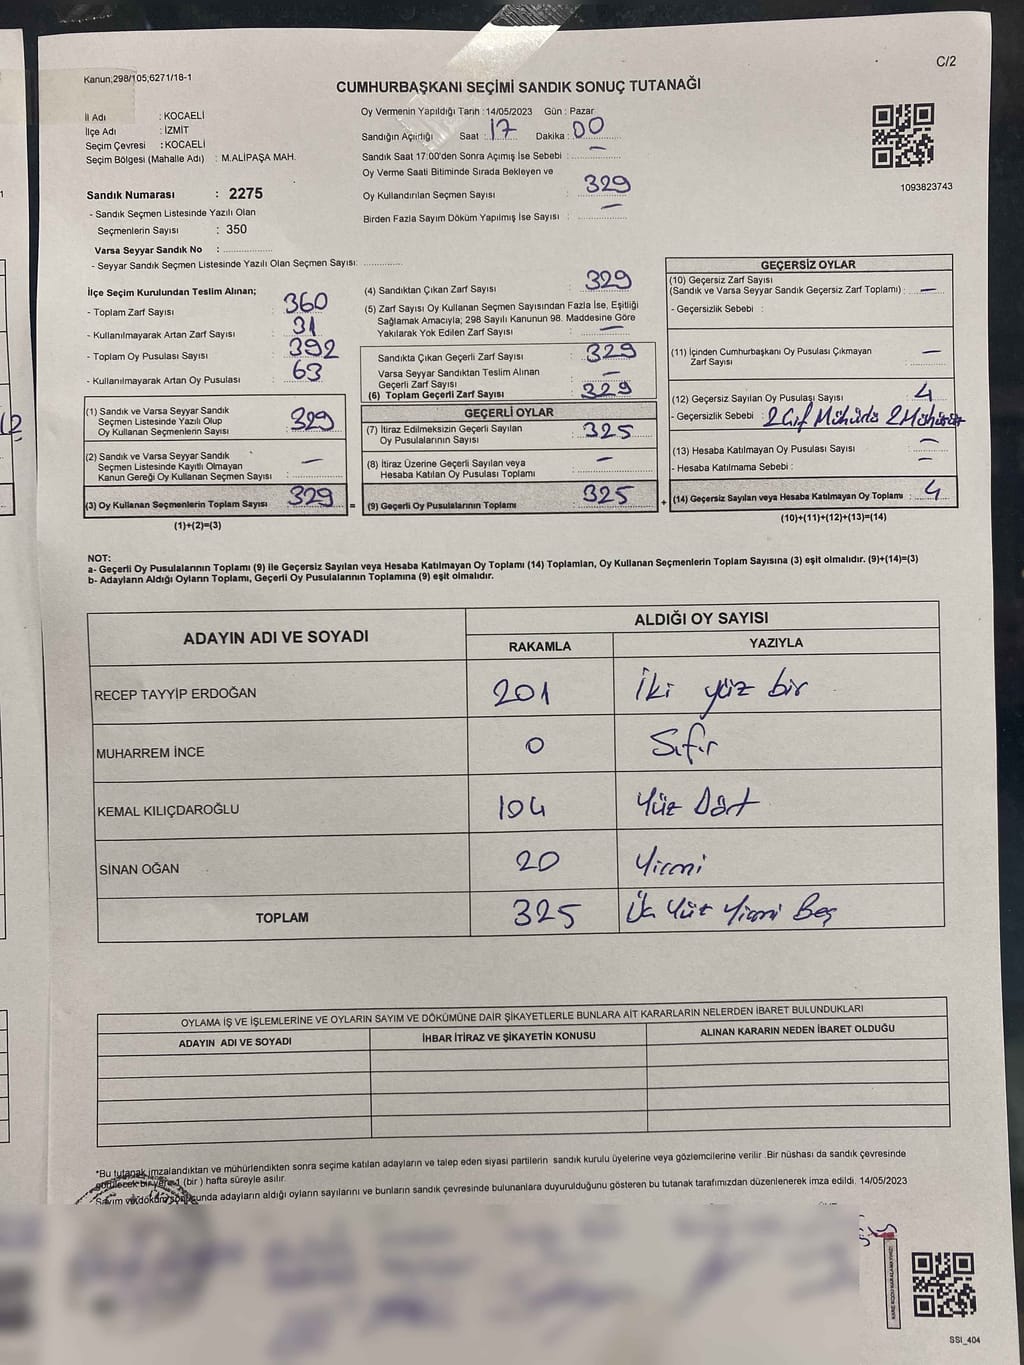 Kanun;298/105;6271/18-1
C/2
CUMHURBAŞKANI SEÇİMİ SANDIK SONUÇ TUTANAĞI
İl Adı : KOCAELİ
İlçe Adı : İZMİT
Seçim Çevresi : KOCAELİ
Seçim Bölgesi (Mahalle Adı) : M.ALİPAŞA MAH.
Sandık Numarası : 2275
- Sandık Seçmen Listesinde Yazılı Olan
Seçmenlerin Sayısı : 350
Varsa Seyyar Sandık No :
- Seyyar Sandık Seçmen Listesinde Yazılı Olan Seçmen Sayısı:
Oy Vermenin Yapıldığı Tarih :14/05/2023 Gün : Pazar
Sandığın Açıldığı Saat : 17 Dakika : 00
Sandık Saat 17:00'den Sonra Açımış İse Sebebi : —
Oy Verme Saati Bitiminde Sırada Bekleyen ve
Oy Kullandırılan Seçmen Sayısı : 329
Birden Fazla Sayım Döküm Yapılmış İse Sayısı : —
1093823743
İlçe Seçim Kurulundan Teslim Alınan;
- Toplam Zarf Sayısı : 360
- Kullanılmayarak Artan Zarf Sayısı : 31
- Toplam Oy Pusulası Sayısı : 392
- Kullanılmayarak Artan Oy Pusulası : 63
(1) Sandık ve Varsa Seyyar Sandık
Seçmen Listesinde Yazılı Olup
Oy Kullanan Seçmenlerin Sayısı : 329
(2) Sandık ve Varsa Seyyar Sandık
Seçmen Listesinde Kayıtlı Olmayan
Kanun Gereği Oy Kullanan Seçmen Sayısı : —
(3) Oy Kullanan Seçmenlerin Toplam Sayısı : 329
(1)+(2)=(3)
=
(4) Sandıktan Çıkan Zarf Sayısı : 329
(5) Zarf Sayısı Oy Kullanan Seçmen Sayısından Fazla İse, Eşitliği
Sağlamak Amacıyla; 298 Sayılı Kanunun 98. Maddesine Göre
Yakılarak Yok Edilen Zarf Sayısı : —
Sandıkta Çıkan Geçerli Zarf Sayısı : 329
Varsa Seyyar Sandıktan Teslim Alınan
Geçerli Zarf Sayısı : —
(6) Toplam Geçerli Zarf Sayısı : 329
GEÇERLİ OYLAR
(7) İtiraz Edilmeksizin Geçerli Sayılan
Oy Pusulalarının Sayısı : 325
(8) İtiraz Üzerine Geçerli Sayılan veya
Hesaba Katılan Oy Pusulası Toplamı : —
(9) Geçerli Oy Pusulalarının Toplamı : 325
+
GEÇERSİZ OYLAR
(10) Geçersiz Zarf Sayısı
(Sandık ve Varsa Seyyar Sandık Geçersiz Zarf Toplamı) : —
- Geçersizlik Sebebi :
(11) İçinden Cumhurbaşkanı Oy Pusulası Çıkmayan
Zarf Sayısı : —
(12) Geçersiz Sayılan Oy Pusulası Sayısı : 4
- Geçersizlik Sebebi : 2 Çif Mühürlü 2 Mühürsüz
(13) Hesaba Katılmayan Oy Pusulası Sayısı : —
- Hesaba Katılmama Sebebi : —
(14) Geçersiz Sayılan veya Hesaba Katılmayan Oy Toplamı : 4
(10)+(11)+(12)+(13)=(14)
NOT:
a- Geçerli Oy Pusulalarının Toplamı (9) ile Geçersiz Sayılan veya Hesaba Katılmayan Oy Toplamı (14) Toplamları, Oy Kullanan Seçmenlerin Toplam Sayısına (3) eşit olmalıdır. (9)+(14)=(3)
b- Adayların Aldığı Oyların Toplamı, Geçerli Oy Pusulalarının Toplamına (9) eşit olmalıdır.
ADAYIN ADI VE SOYADI
ALDIĞI OY SAYISI
RAKAMLA YAZIYLA
RECEP TAYYİP ERDOĞAN 201 İki yüz bir
MUHARREM İNCE 0 Sıfır
KEMAL KILIÇDAROĞLU 104 Yüz Dört
SİNAN OĞAN 20 Yirmi
TOPLAM 325 Üç Yüz Yirmi Beş
OYLAMA İŞ VE İŞLEMLERİNE VE OYLARIN SAYIM VE DÖKÜMÜNE DAİR ŞİKAYETLERLE BUNLARA AİT KARARLARIN NELERDEN İBARET BULUNDUKLARI
ADAYIN ADI VE SOYADI İHBAR İTİRAZ VE ŞİKAYETİN KONUSU ALINAN KARARIN NEDEN İBARET OLDUĞU
*Bu tutanak imzalandıktan ve mühürlendikten sonra seçime katılan adayların ve talep eden siyasi partilerin sandık kurulu üyelerine veya gözlemcilerine verilir .Bir nüshası da sandık çevresinde
görülecek bir yere 1 (bir ) hafta süreyle asılır.
Sayım ve döküm sonucunda adayların aldığı oyların sayılarını ve bunların sandık çevresinde bulunanlara duyurulduğunu gösteren bu tutanak tarafımızdan düzenlenerek imza edildi. 14/05/2023
SSI_404